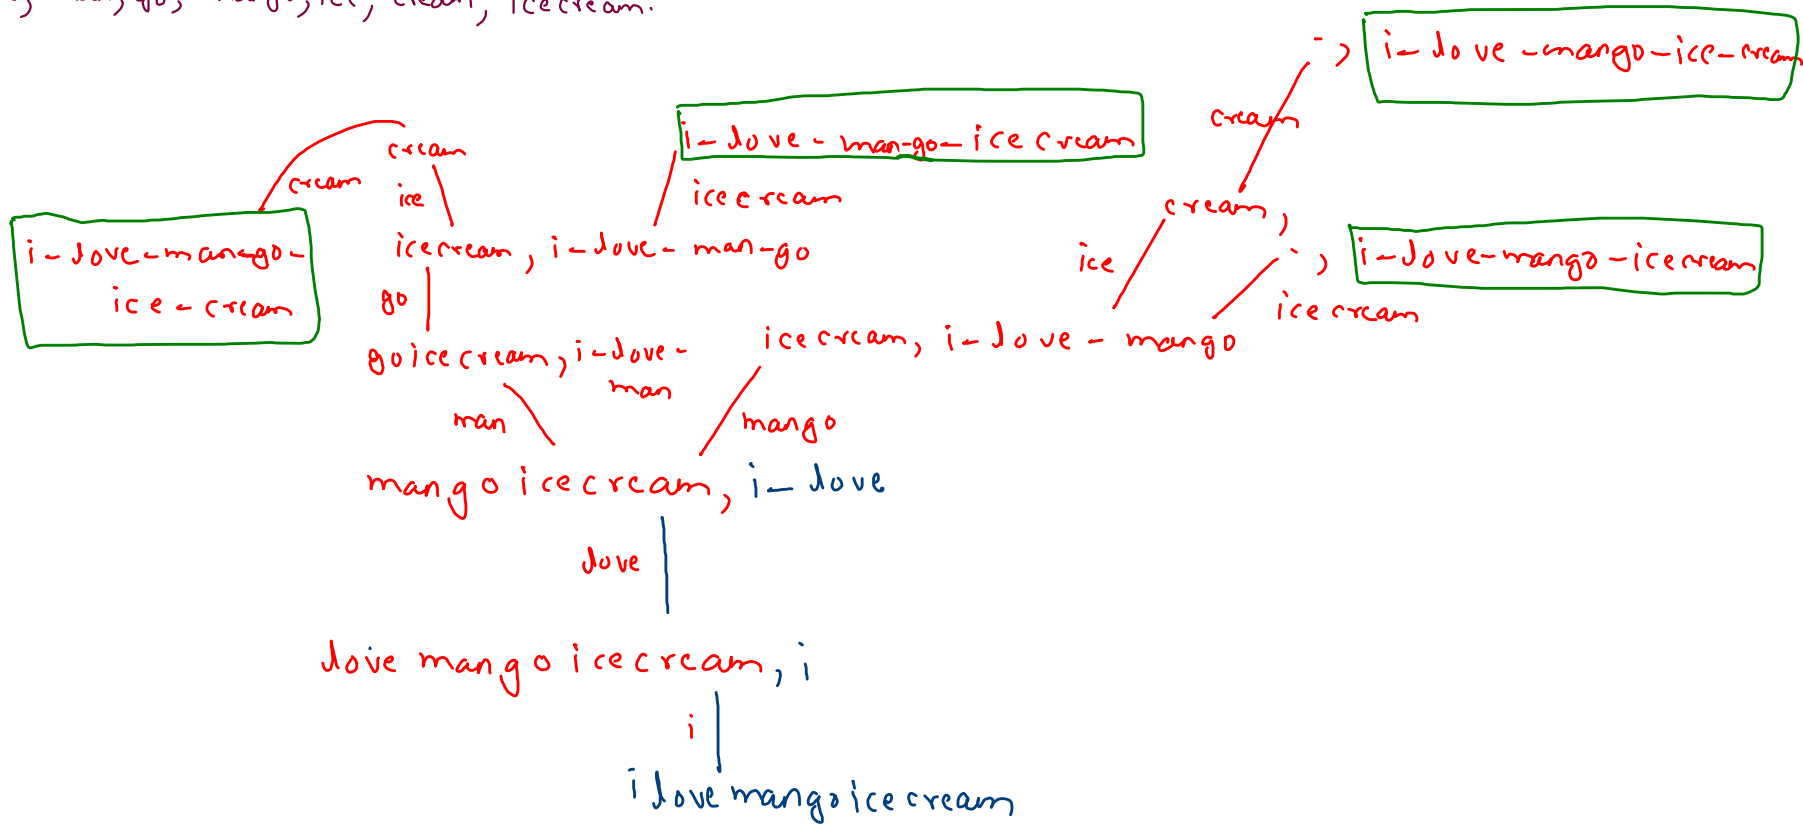 go, mango, ice, cream, icecream.
-, i-love-mango-ice-cream
cream
i-love-man-go-icecream
cream
cream
ice
icecream
cream,
i-love-man-go-
ice-cream
icecream, i-love-man-go
ice
-, i-love-mango-icecream
go
icecream
goicecream, i-love-
man
icecream, i-love-mango
man
mango
mangoicecream, i-love
love
lovemangoicecream, i
i
ilovemangoicecream